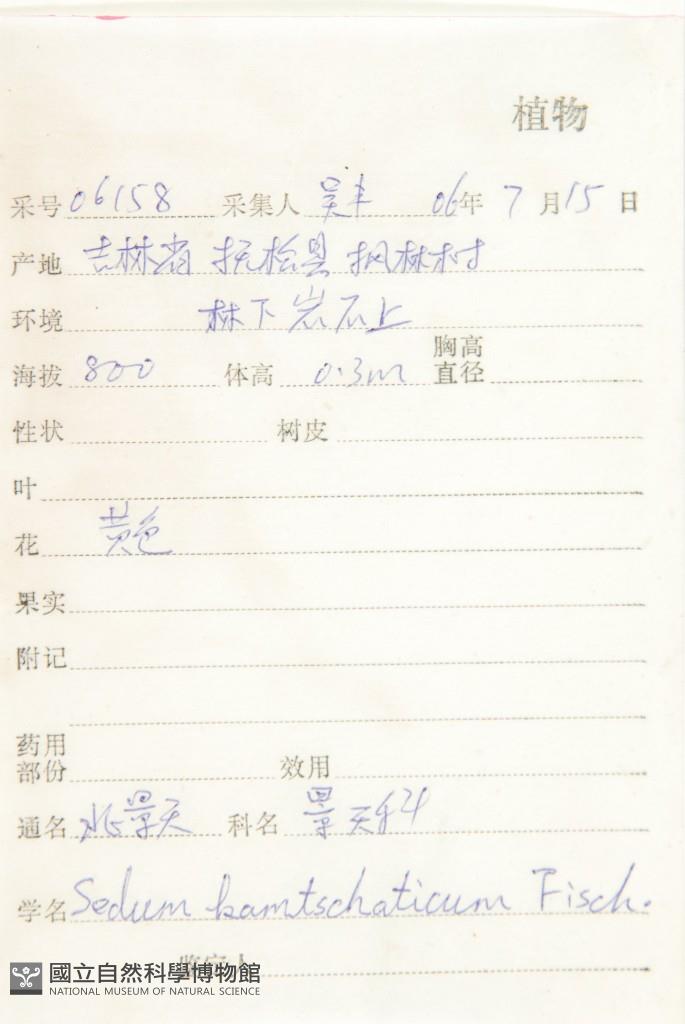 植物
采号 06158 采集人 吴丰 06年 7月15日
产地 吉林省 抚松县 枫林村
环境 林下岩石上
海拔 800 体高 0.3m 胸高直径
性状 树皮
叶
花 黄色
果实
附记
药用部份 效用
通名 景天 科名 景天科
学名 Sedum kamtschaticum Fisch.
鉴定人
國立自然科學博物館
NATIONAL MUSEUM OF NATURAL SCIENCE